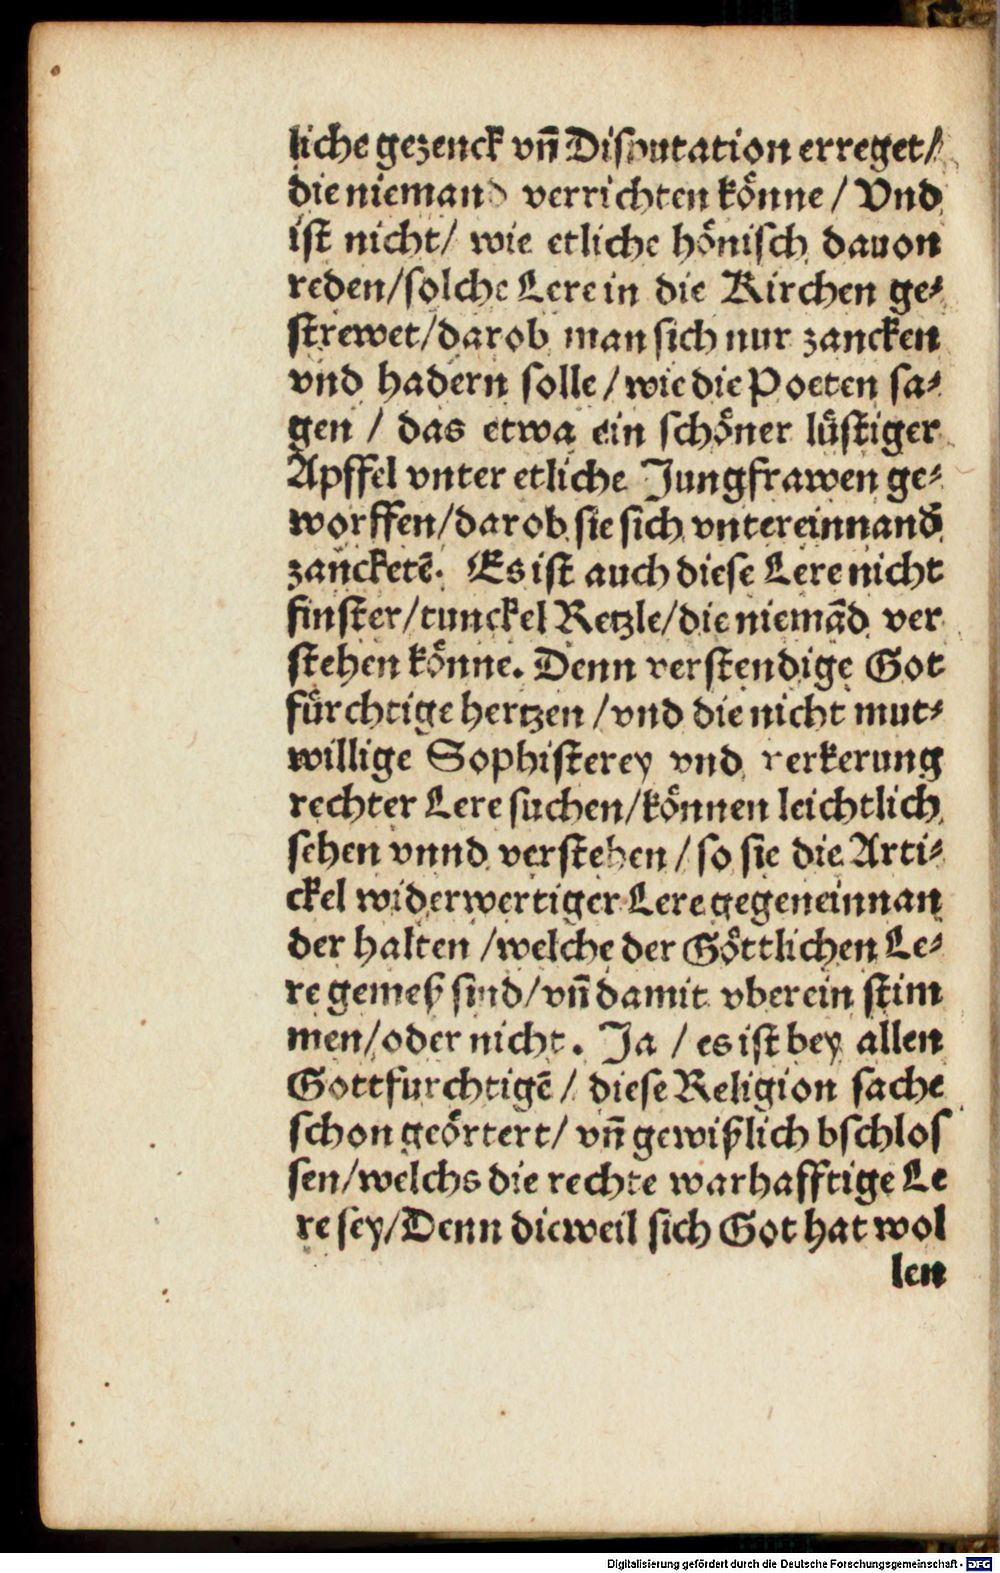 liche gezenck vñ Disputation erreget/
die niemand verrichten könne / Vnd
ist nicht/ wie etliche hönisch dauon
reden/solche Lere in die Kirchen ge⸗
strewet/darob man sich nur zancken
vnd hadern solle / wie die Poeten sa⸗
gen / das etwa ein schöner lüstiger
Apffel vnter etliche Jungfrawen ge⸗
worffen/darob sie sich vntereinnand
zancketē. Es ist auch diese Lere nicht
finster/tunckel Retzle/die niemād ver
stehen könne. Denn verstendige Got
fürchtige hertzen /vnd die nicht mut⸗
willige Sophisterey vnd verkerung
rechter Lere suchen/können leichtlich
sehen vnnd verstehen / so sie die Arti⸗
ckel widerwertiger Lere gegeneinnan
der halten /welche der Göttlichen Le⸗
re gemeß sind/vñ damit vberein stim
men/oder nicht. Ja / es ist bey allen
Gottfurchtigē / diese Religion sache
schon geörtert/ vñ gewißlich bschlos
sen/welchs die rechte warhafftige Le
re sey/Denn dieweil sich Got hat wol
len
Digitalisierung gefördert durch die Deutsche Forschungsgemeinschaft - DFG